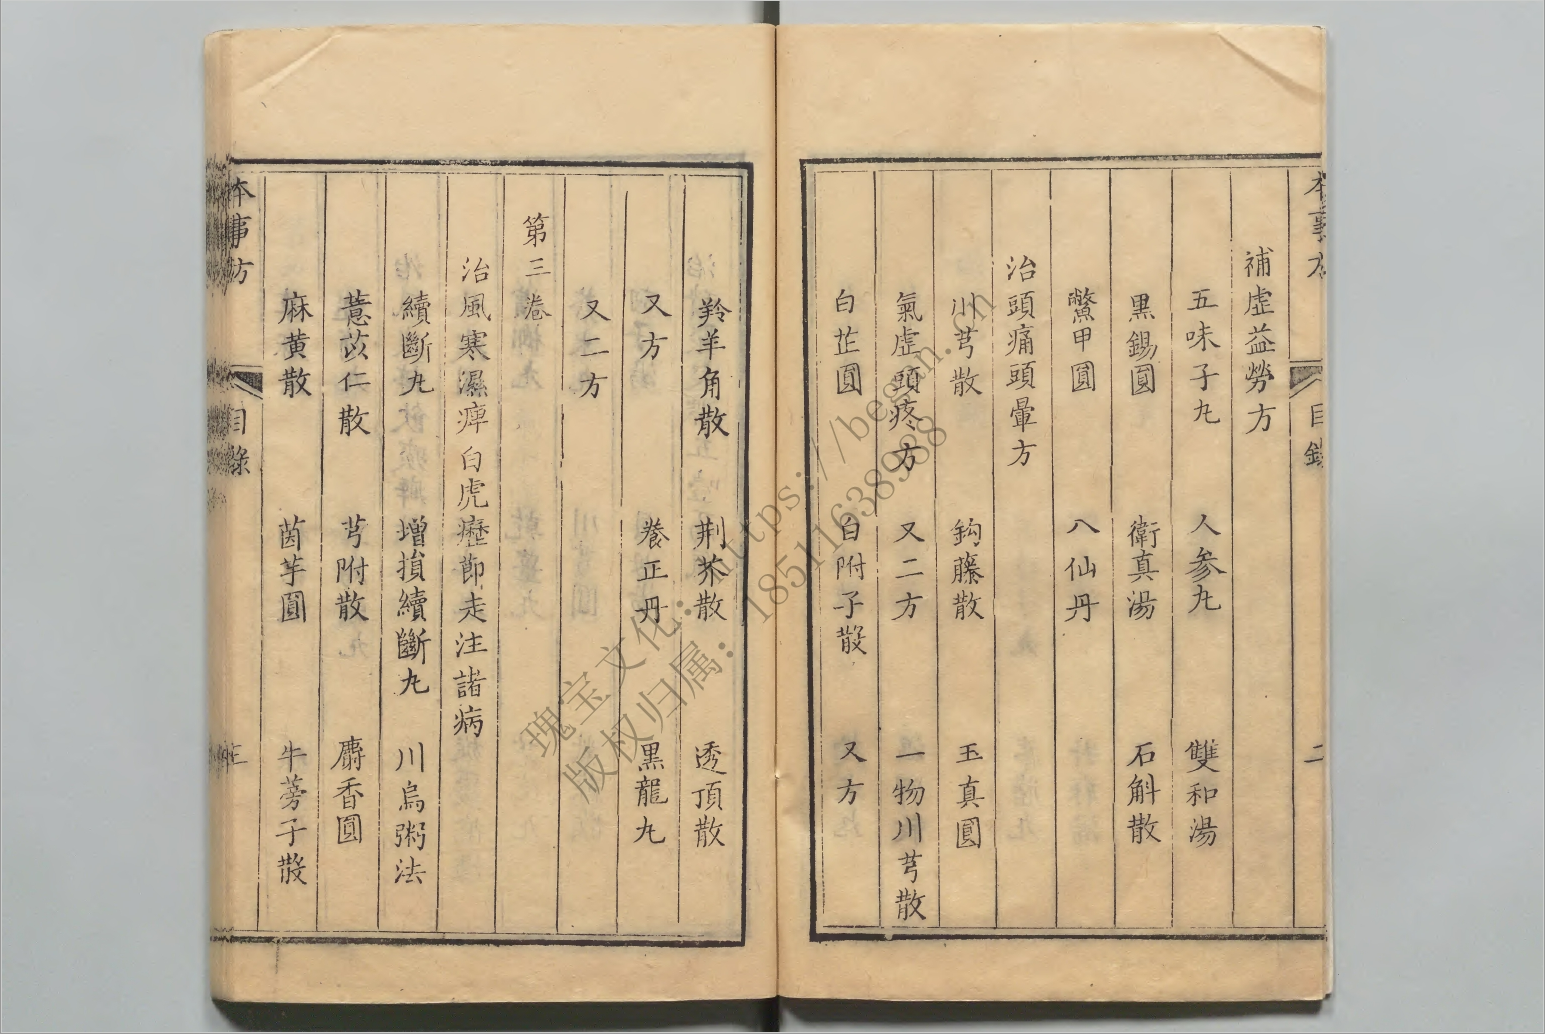 本事方
目錄
二
補虛益勞方
五味子丸 人參丸 雙和湯
黑錫圓 衛真湯 石斛散
鱉甲圓 八仙丹
治頭痛頭暈方
川芎散 鈎藤散 玉真圓
氣虛頭疼方 又二方 一物川芎散
白芷圓 白附子散 又方
羚羊角散 荆芥散 透頂散
又方 養正丹 黑龍丸
又二方
第三卷
治風寒濕痺白虎歷節走注諸病
續斷丸 增損續斷丸 川烏粥法
薏苡仁散 芎附散 麝香圓
麻黄散 茵芋圓 牛蒡子散
本事方
目錄
三
瑰宝文化：https://began.cn
版权归属：18511638988